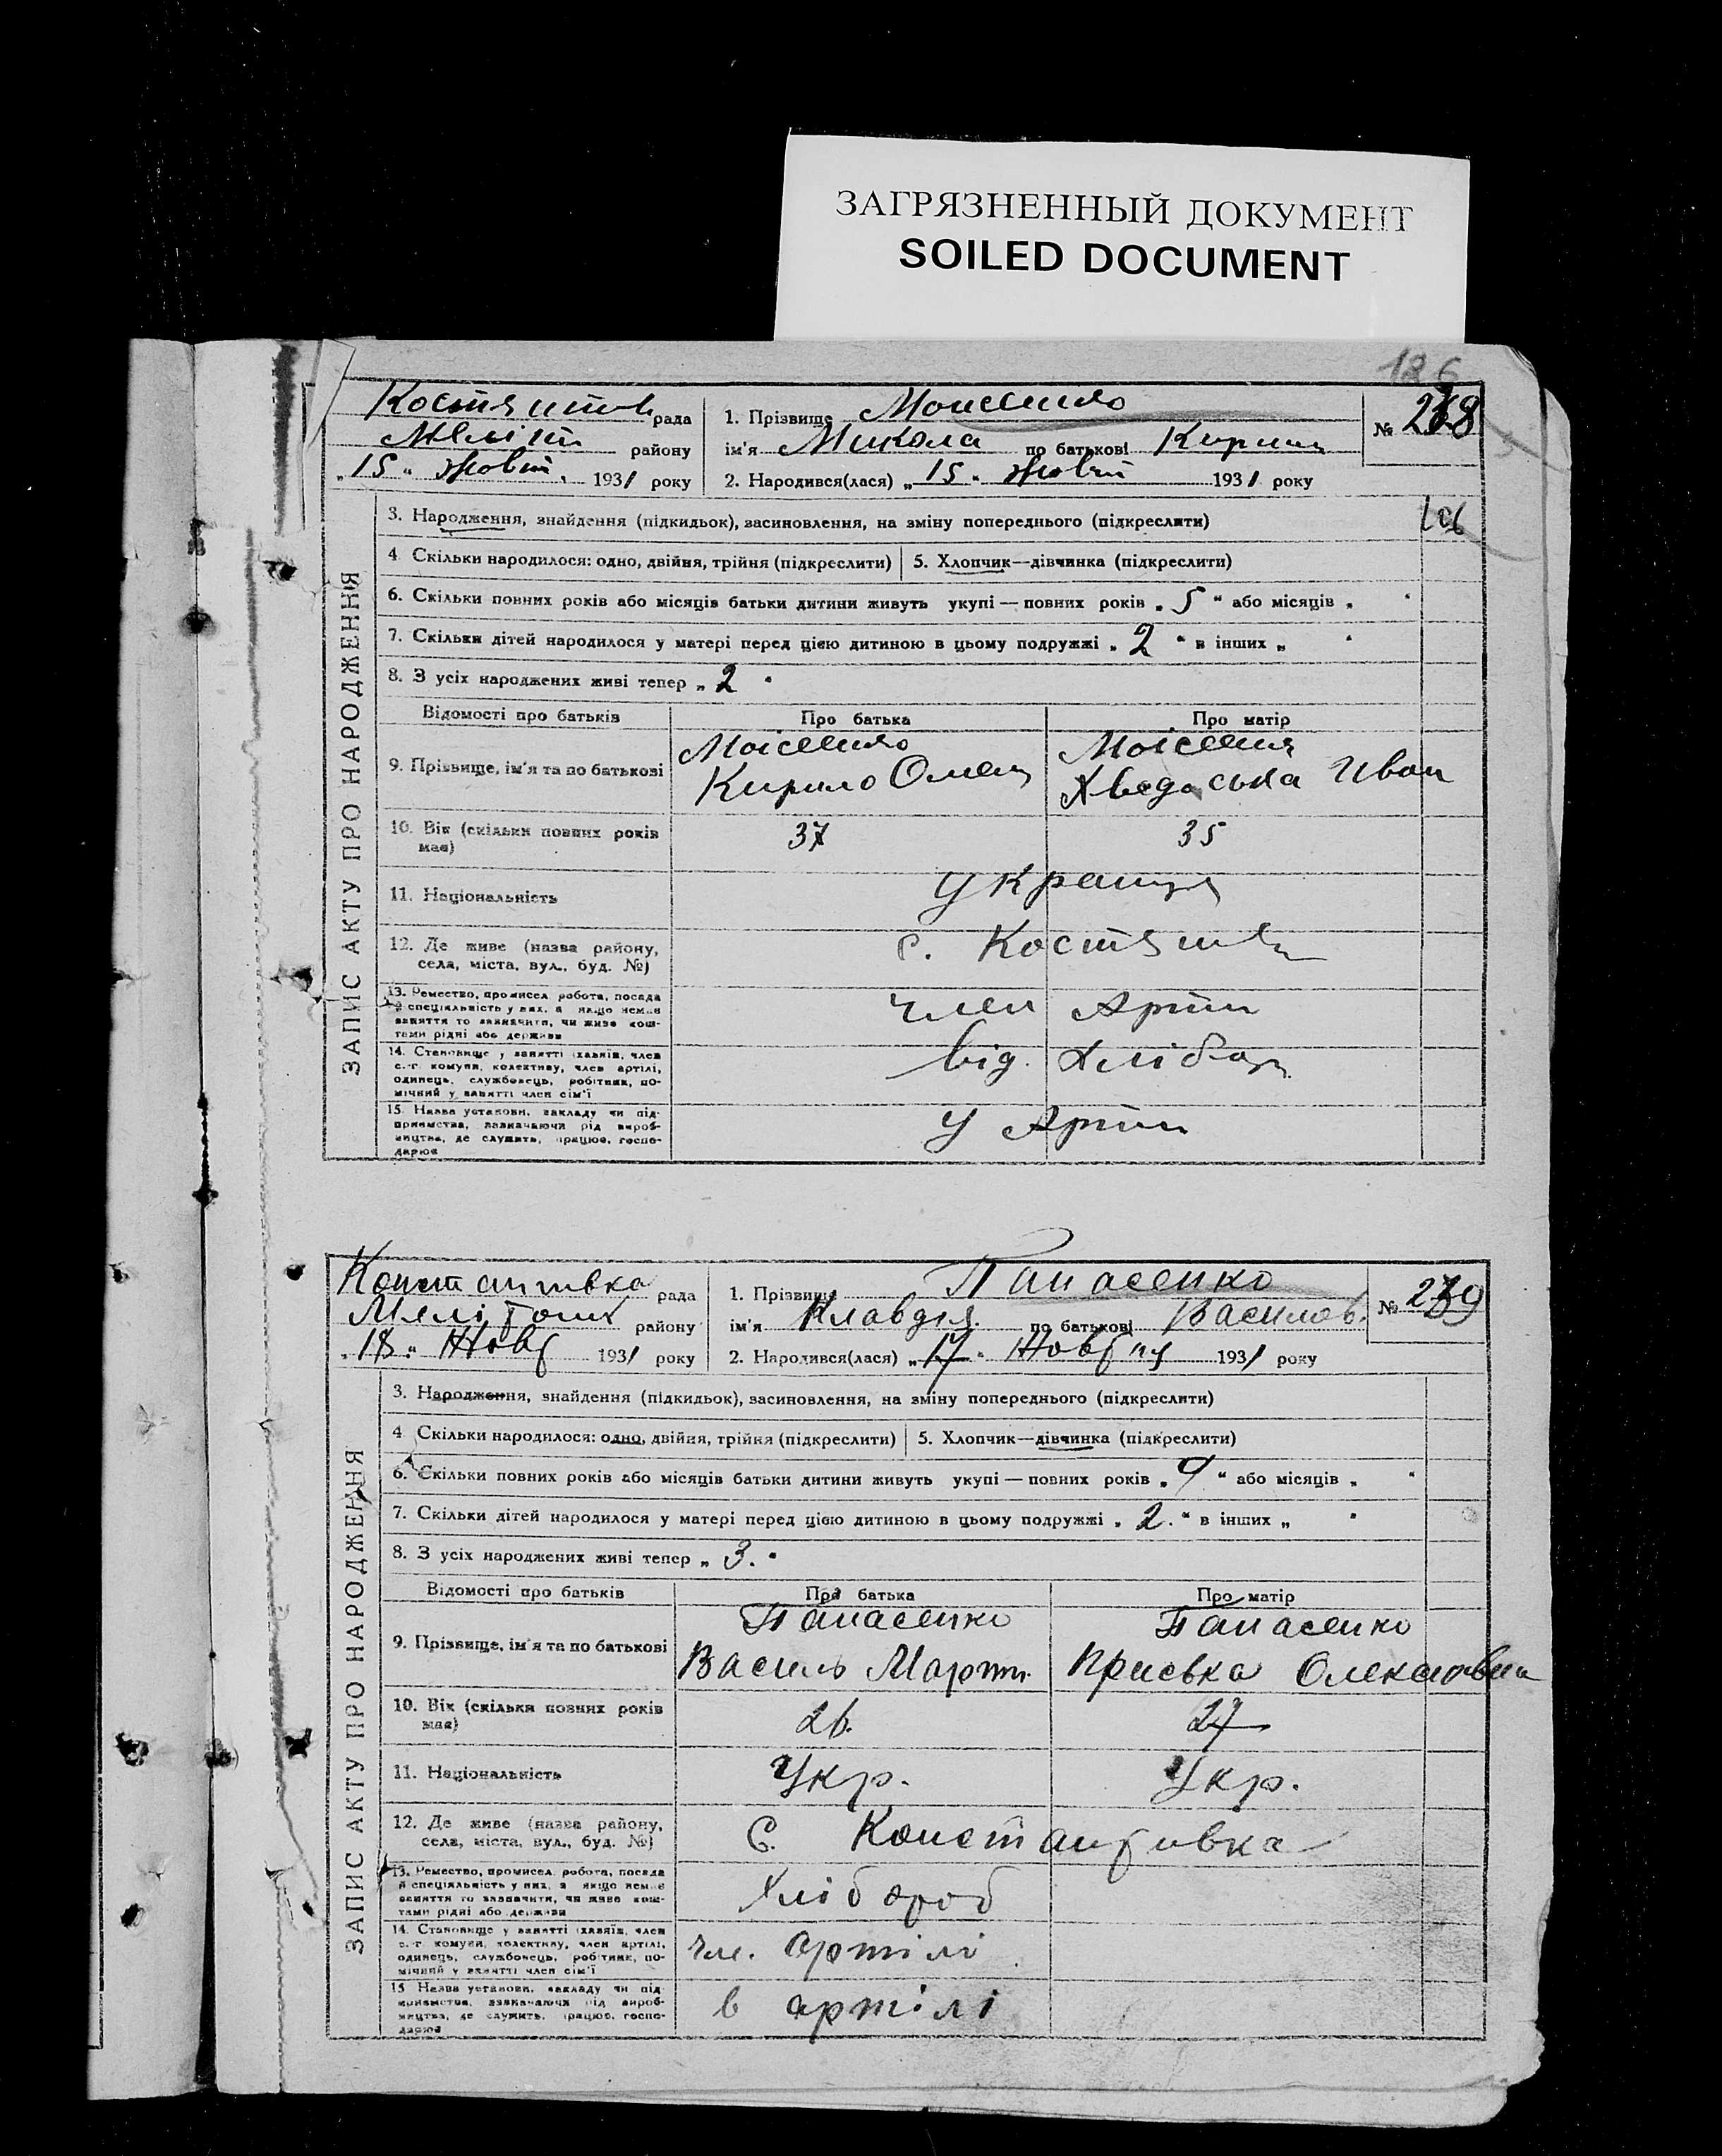 ЗАГРЯЗНЕННЫЙ ДОКУМЕНТ
SOILED DOCUMENT
126
рада
району
„15“ Жовт. 1931 року
1. Прізвище Моисеенко
ім'я Микола по батькові Кирил
2. Народився(лася) „15“ Жовт 1931 року
№ 238
ЗАПИС АКТУ ПРО НАРОДЖЕННЯ
3. Народження, знайдення (підкидьок), засиновлення, на зміну попереднього (підкреслити)
4 Скільки народилося: одно, двійня, трійня (підкреслити) 5. Хлопчик—дівчинка (підкреслити)
6. Скільки повних років або місяців батьки дитини живуть укупі — повних років „5“ або місяців „ “
7. Скільки дітей народилося у матері перед цією дитиною в цьому подружжі „2“ в інших „ “
8. З усіх народжених живі тепер „2“
Відомості про батьків Про батька Про матір
9. Прізвище, ім'я та по батькові
Кирило Хведоська Иван
10. Вік (скільки повних років має) 37 35
11. Національність
12. Де живе (назва району, села, міста, вул., буд. №) с.
13. Ремество, промисел робота, посада
й спеціяльність у них, а якщо немає
заняття то зазначити, чи живе кош-
тами рідні або держави
член
14. Становище у занятті (хазяїн, член
с.-г. комуни, колективу, член артілі,
одинець, службовець, робітник, по-
мічний у занятті член сім'ї
від.
15. Назва установи, закладу чи під-
приємства, зазначаючи рід вироб-
ництва, де служить, працює, госпо-
дарює
у
Константивка рада
району
„18“ Жовт 1931 року
1. Прізвище Панасенко
ім'я Клавдія по батькові Василов.
2. Народився(лася) „17“ 1931 року
№ 239
ЗАПИС АКТУ ПРО НАРОДЖЕННЯ
3. Народження, знайдення (підкидьок), засиновлення, на зміну попереднього (підкреслити)
4 Скільки народилося: одно, двійня, трійня (підкреслити) 5. Хлопчик—дівчинка (підкреслити)
6. Скільки повних років або місяців батьки дитини живуть укупі — повних років „9“ або місяців „ “
7. Скільки дітей народилося у матері перед цією дитиною в цьому подружжі „2.“ в інших „ “
8. З усіх народжених живі тепер „3.“
Відомості про батьків Про батька Про матір
9. Прізвище, ім'я та по батькові
Панасенко Панасенко
Василь Марти. Приська
10. Вік (скільки повних років має) 26. 27
11. Національність Укр. Укр.
12. Де живе (назва району, села, міста, вул., буд. №) С. Константивка
13. Ремество, промисел робота, посада
й спеціяльність у них, а якщо немає
заняття то зазначити, чи живе кош-
тами рідні або держави
Хлібороб
14. Становище у занятті (хазяїн, член
с.-г. комуни, колективу, член артілі,
одинець, службовець, робітник, по-
мічний у занятті член сім'ї
чле. артілі
15 Назва установи, закладу чи під-
приємства, зазначаючи рід вироб-
ництва, де служить, працює, госпо-
дарює
в артілі